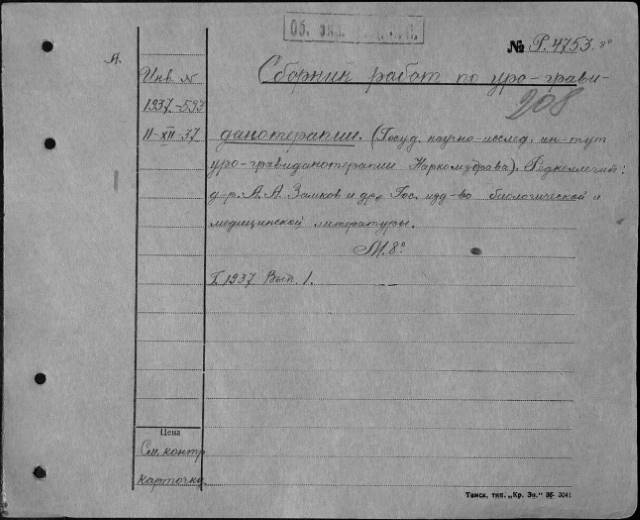 Об. экз.
№ Р.4753.
А.
Инв. №
Сборник работ по уро-грави-
1937-593
208
11-XII-37
данотерапии. (Госуд. научно-исслед. ин-тут
уро-гравиданотерапии Наркомздрава). Редколлегия:
д-р. А. А. Замков и др. Гос. изд-во биологической и
медицинской литературы.
М. 8°
I. 1937 Вып. 1.
Цена
См. контр.
карточку.
Тамск. тип. „Кр. Зн.“ 36 3041